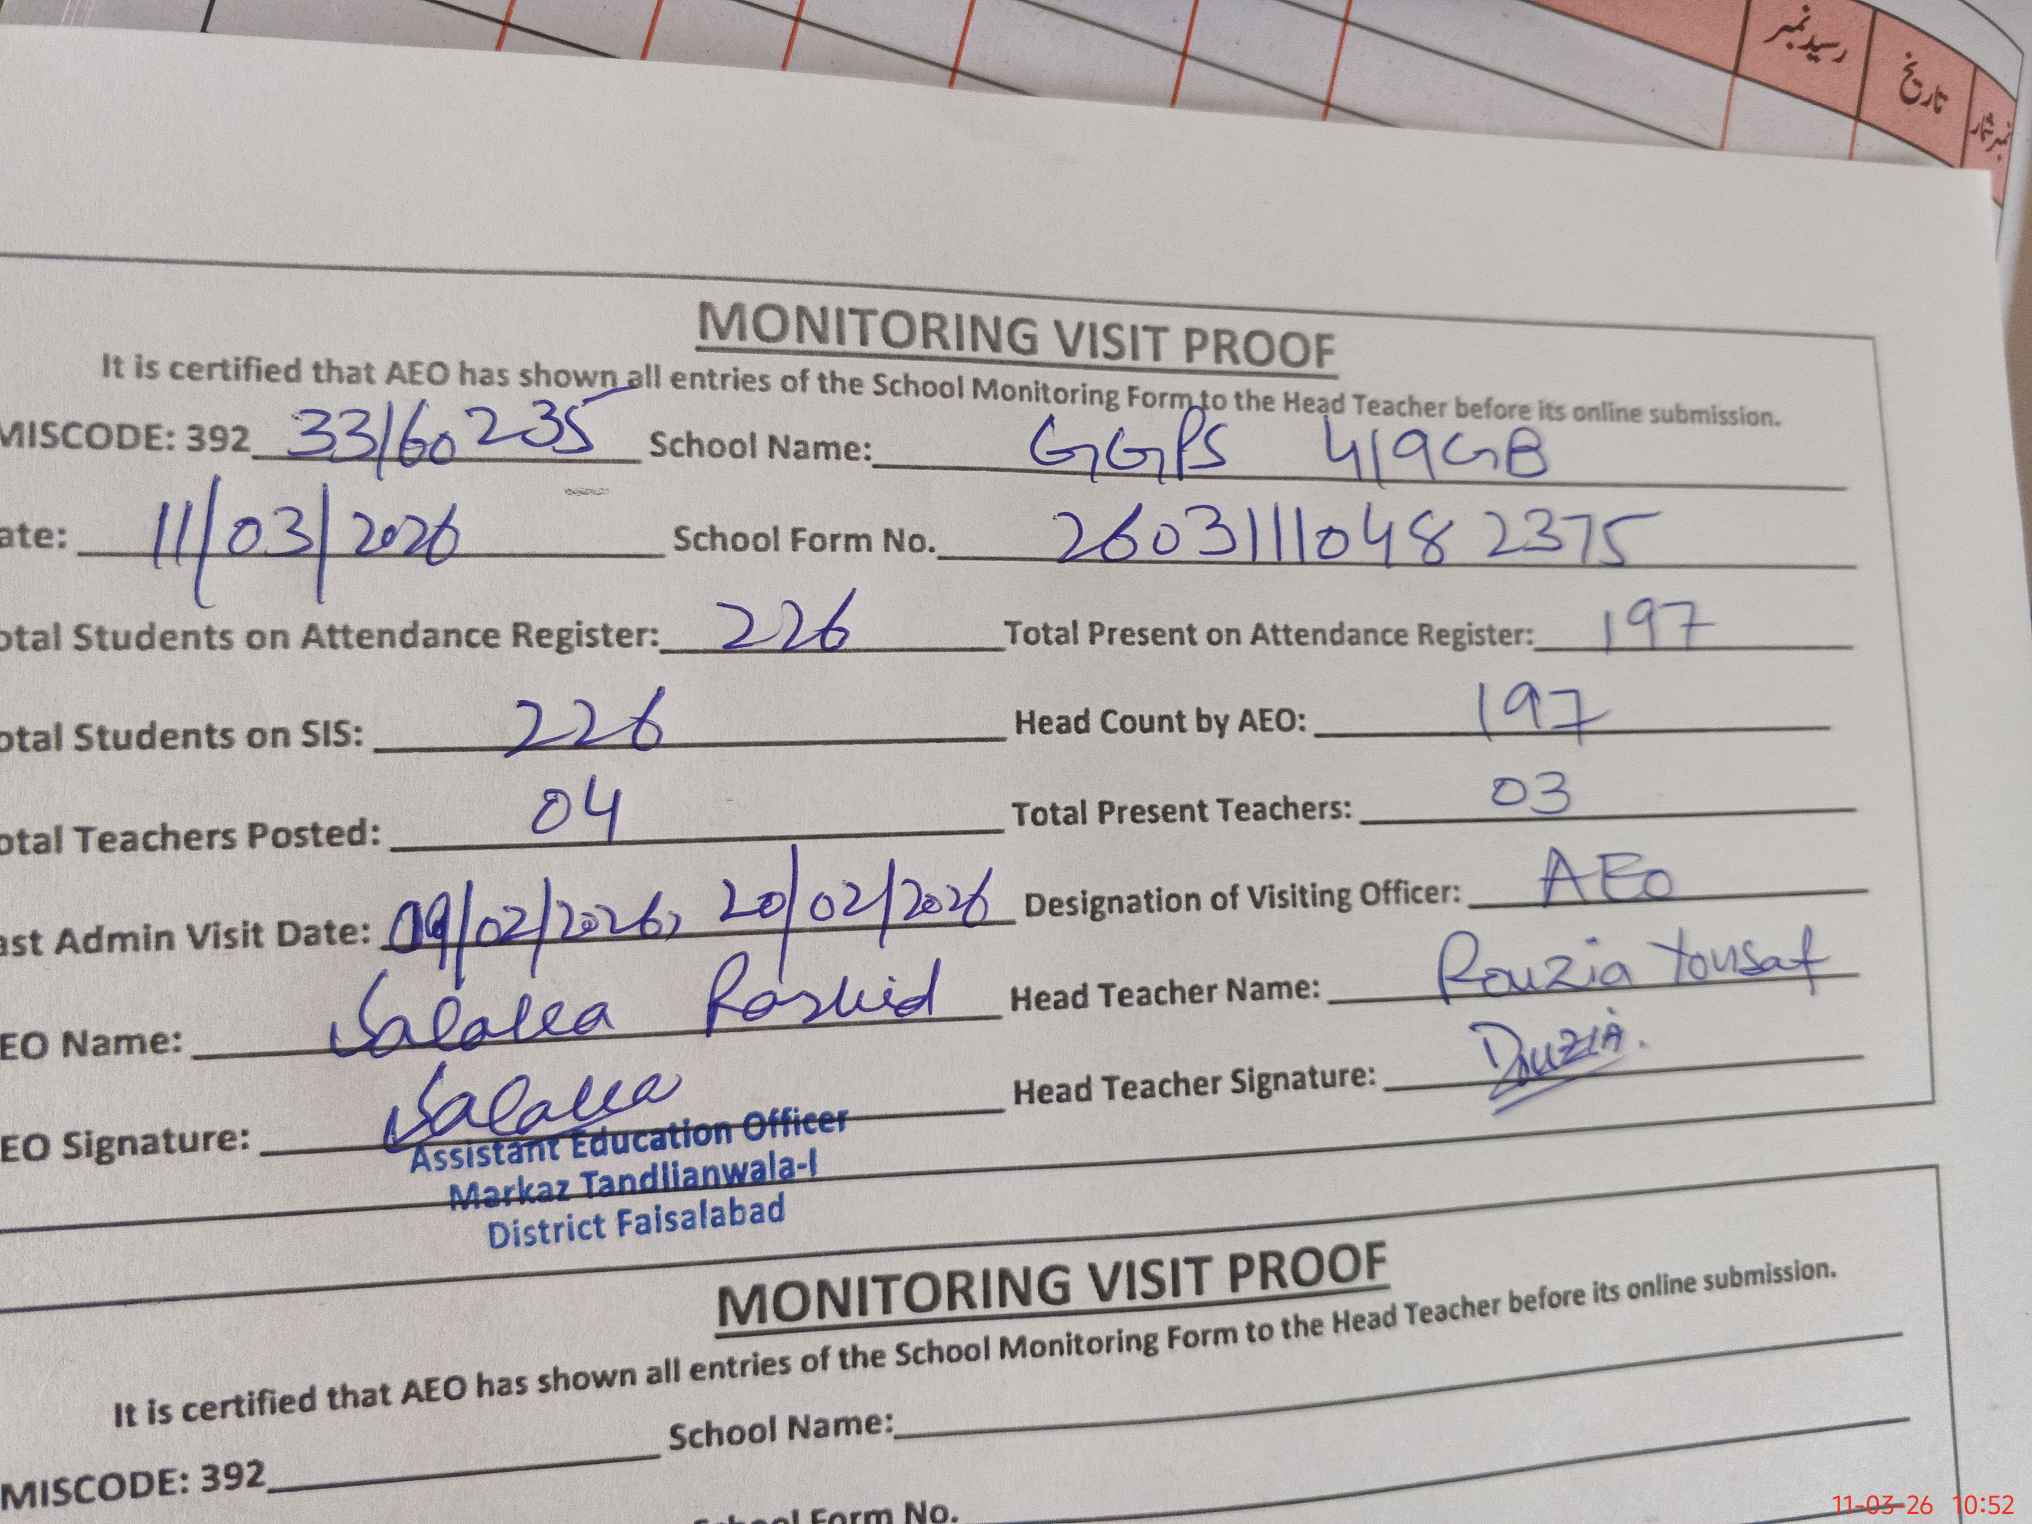 رسید نمبر
تاریخ
نمبر شمار
MONITORING VISIT PROOF
It is certified that AEO has shown all entries of the School Monitoring Form to the Head Teacher before its online submission.
MISCODE: 392 33160235 School Name: GGPS 419GB
ate: 11/03/2026 School Form No. 26031110482375
otal Students on Attendance Register: 226 Total Present on Attendance Register: 197
otal Students on SIS: 226 Head Count by AEO: 197
otal Teachers Posted: 04 Total Present Teachers: 03
ast Admin Visit Date: 09/02/2026, 20/02/2026 Designation of Visiting Officer: AEO
EO Name: Rashid Head Teacher Name: Rouzia Yousaf
EO Signature: Head Teacher Signature:
Assistant Education Officer
Markaz Tandlianwala-I
District Faisalabad
MONITORING VISIT PROOF
It is certified that AEO has shown all entries of the School Monitoring Form to the Head Teacher before its online submission.
MISCODE: 392 School Name:
School Form No.
11-03-26 10:52